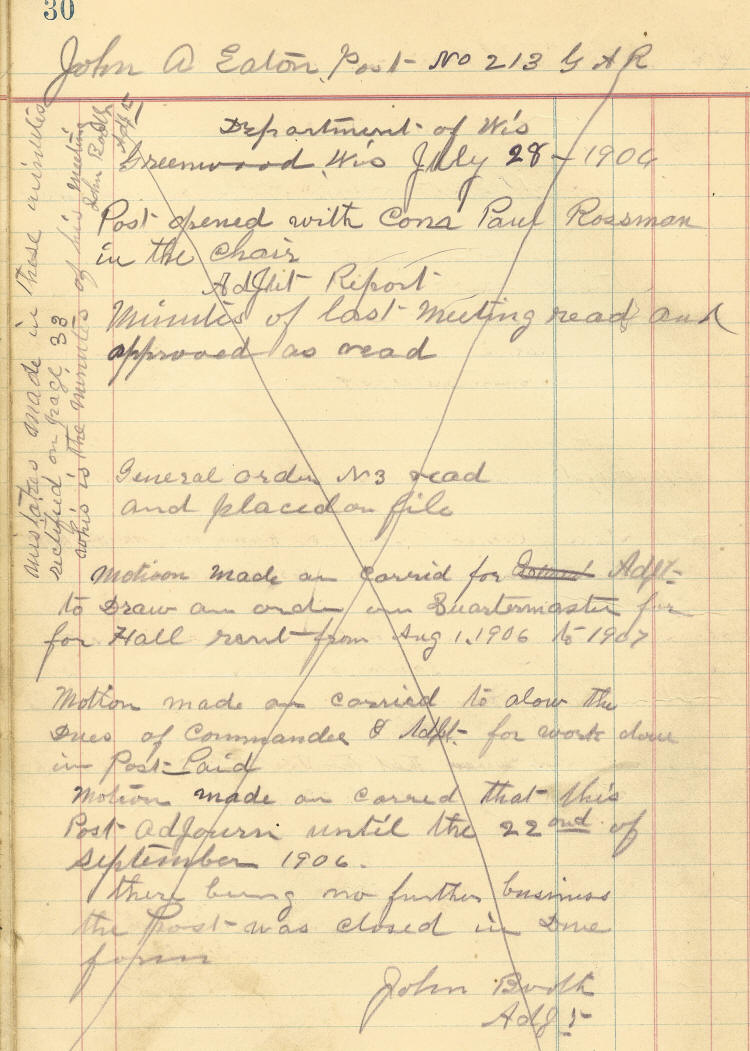 30
John A Eaton Post No 213 G A R
Department of Wis
Greenwood, Wis July 28 - 1906
Post opened with Com Paul Rossman
in the Chair
AdJtit Report
Minutes of last Meeting read and
approved as read
General order N 3 read
and placed on file
Motioon made an Carrid for Adjt-
to Draw an order on Quartermaster for
for Hall rent from Aug 1, 1906 to 1907
Motion made an carried to alow the
Dues of Commander & Adjt. for work done
in Post Paid
Motion made an carred that this
Post AdJourn until the 22ond of
September 1906.
there being no further business
the Post was closed in Due
form
John Booth
Adjt
mistakes made in these minutes
rectified on page 33
this is the minutes of his meeting
John Booth
Adjt